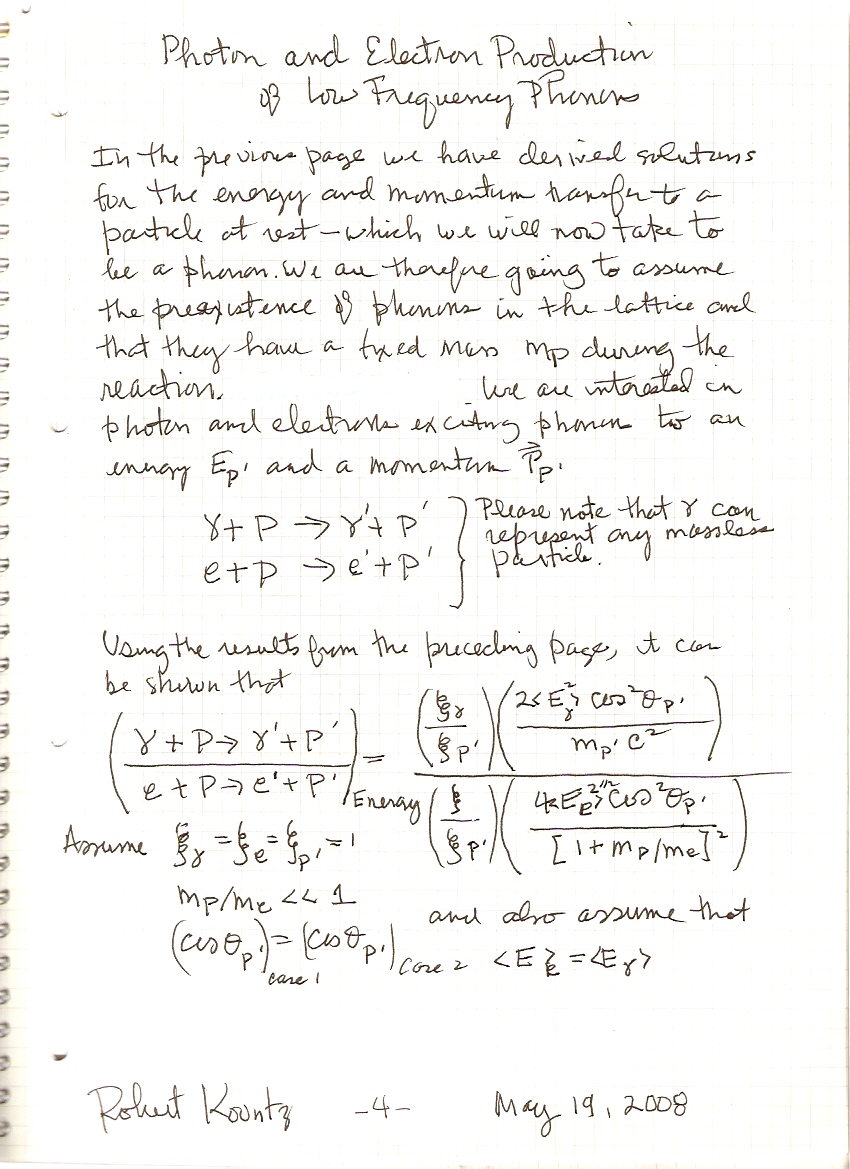 Photon and Electron Production
of Low Frequency Phonons
In the previous page we have derived solutions
for the energy and momentum transfer to a
particle at rest – which we will now take to
be a phonon. We are therefore going to assume
the preexistence of phonons in the lattice and
that they have a fixed mass mp during the
reaction. We are interested in
photon and electrons exciting phonon to an
energy Ep' and a momentum P⃗p'
γ + P → γ' + P' } Please note that γ can
represent any massless
e + p → e' + P' particle.
Using the results from the preceding page, it can
be shown that
(γ + P → γ' + P' / e + P → e' + P')Energy = (ξγ/ξp')(2<Eγ²> cos²θp' / mp' c²) / (ξ/ξp')(4<Ee²>^1/2 cos²θp' / [1 + mp/me]²)
Assume ξγ = ξe = ξp' = 1
mp/me << 1
and also assume that
(cosθp')case 1 = (cosθp')Case 2 <E>e = <Eγ>
Robert Kountz -4- May 19, 2008